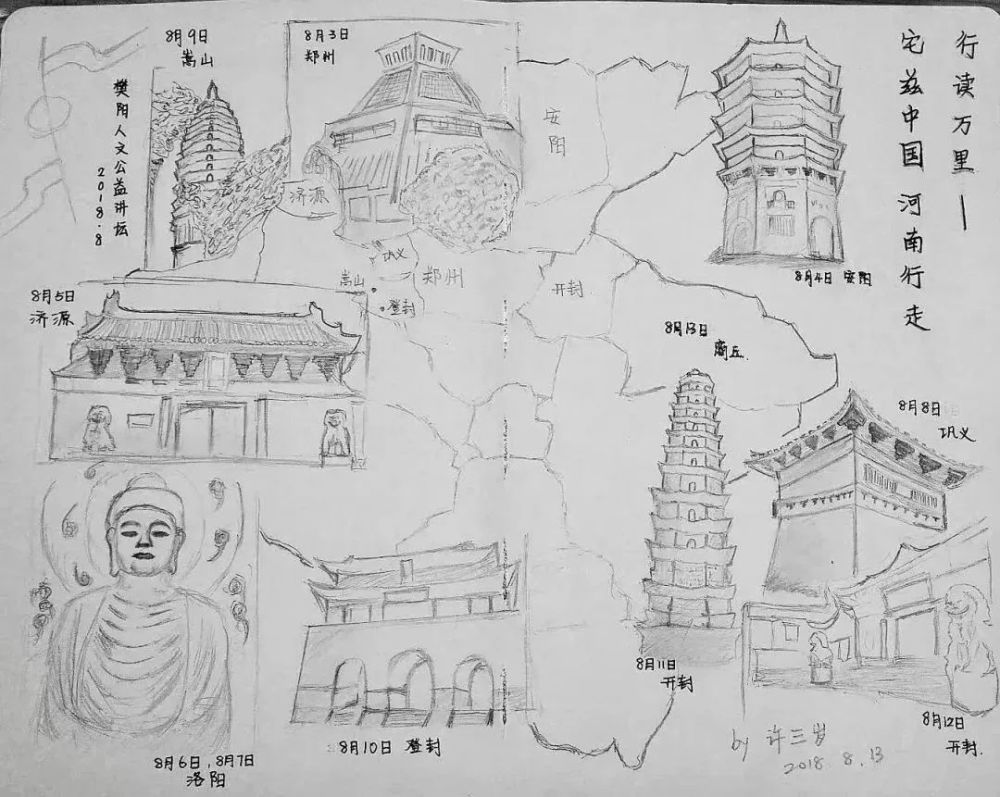 行读万里—
宅兹中国 河南行走
8月9日
嵩山
樊阳人文公益讲坛
2018.8
8月3日
郑州
安阳
济源
巩义
郑州
嵩山
登封
开封
8月4日 安阳
8月5日
济源
8月13日
商丘.
8月8日
巩义
8月11日
开封
8月12日
开封.
8月10日 登封
8月6日,8月7日
洛阳
by 许三岁
2018.8.13